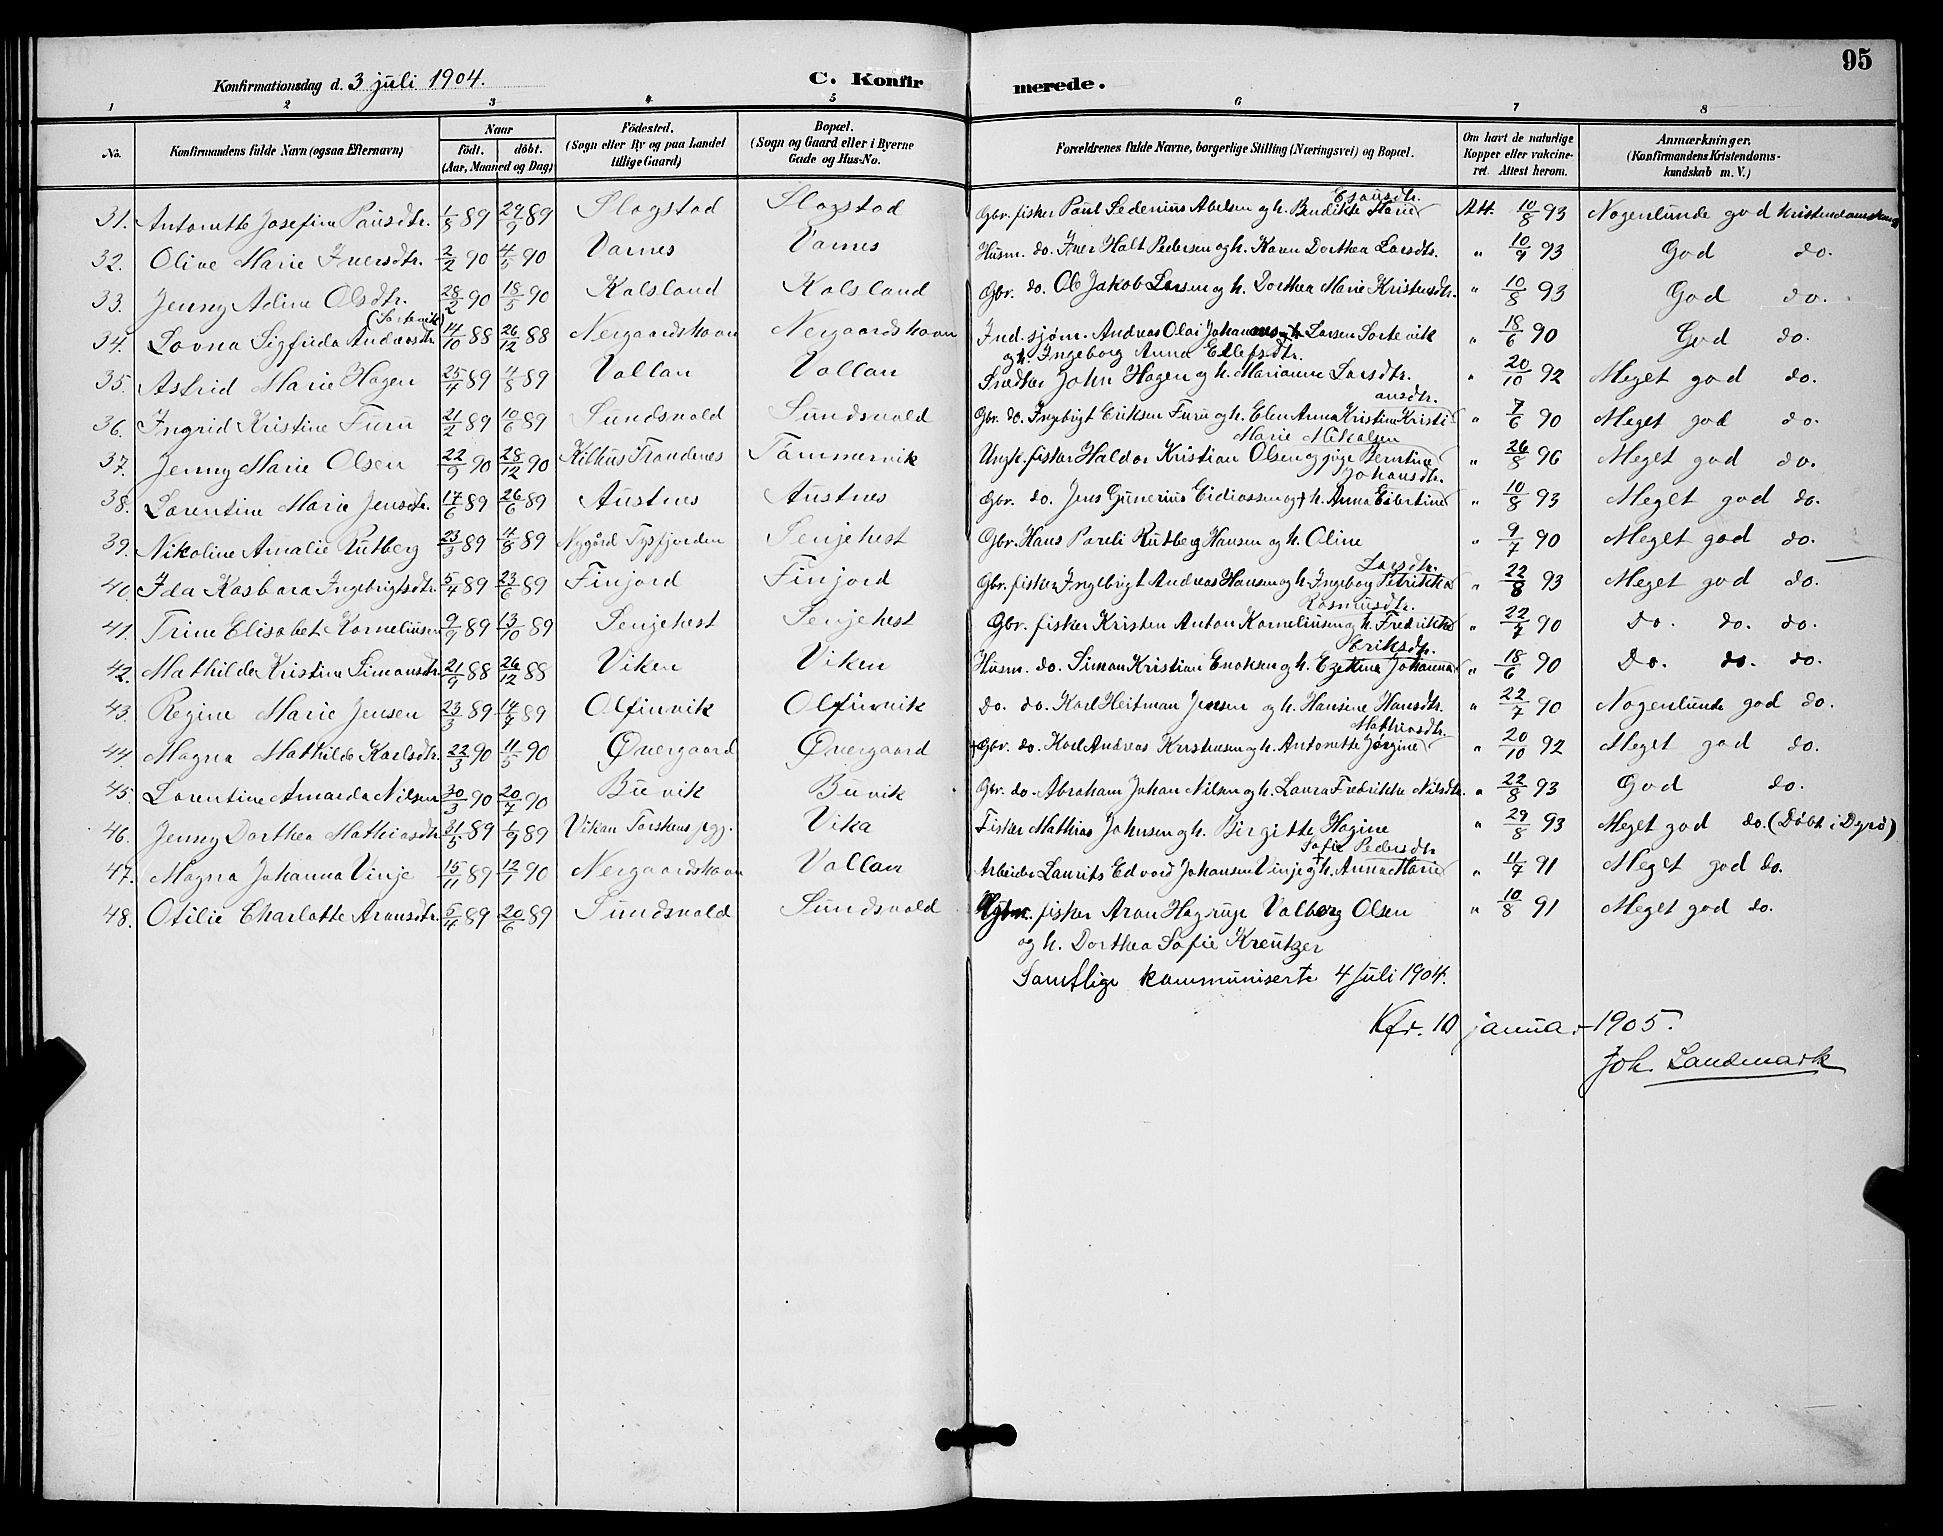 95
Konfirmationsdag d. 3 juli 1904. C. Konfirmerede.
1 2 3 4 5 6 7 8
No. Konfirmandens fulde Navn (ogsaa Efternavn) Naar födt. döbt. (Aar, Maaned og Dag) Födested. (Sogn eller By og paa Landet tillige Gaard) Bopæl. (Sogn og Gaard eller i Byerne Gade og Hus-No. Forældrenes fulde Navne, borgerlige Stilling (Næringsvei) og Bopæl. Om havt de naturlige Kopper eller vakcineret. Attest herom. Anmærkninger. (Konfirmandens Kristendomskundskab m. V.)
31. Antonette Josefine Paulsdtr. 1/8 89 29/9 89 Slagstad Slagstad Gbr. fisker Paul Sedenius Abelsen og h. Bendikte Marie Esausdtr. Att. 10/8 93 Nogenlunde god Kristendomskund
32. Olive Marie Iversdtr. 2/2 90 4/5 90 Vamnes Vamnes Husm. do. Iver Halt Pedersen og h. Karen Dorthea Larsdtr. " 10/9 93 God do.
33. Jenny Adine Olsdtr. 28/2 90 18/5 90 Kalsland Kalsland Gbr. do. Ole Jakob Larsen og h. Dorthea Marie Kristensdtr. " 10/8 93 God do.
34. Lovna Sigfrida Andreasdtr. (Sortevik) 14/10 88 26/12 88 Nergaardshavn Nergaardshavn Ind. sjøm. Andreas Olai Johan Larsen Sortevik " 18/6 90 God do.
og h. Ingeborg Anna Ellefsdtr.
35. Astrid Marie Hagen 25/4 89 4/8 89 Vallan Vallan Snedker John Hagen og h. Marianne Larsdtr. " 20/10 92 Meget god do.
36. Ingrid Kristine Furu 21/2 89 10/6 89 Sundsvold Sundsvold Gbr. do. Ingebrigt Eriksen Furu og h. Elen Anna Kristine Kristiansdtr. " 7/6 90 Meget god do.
37. Jenny Marie Olsen 22/9 90 28/12 90 Kilhus Trondenes Tømmervik Ungk. fisker Haldor Kristian Olsen og pige Berntine Marie Mikalsen " 26/8 96 Meget god do.
38. Lorentine Marie Jensdtr. 17/6 89 26/6 89 Austnes Austnes Gbr. do. Jens Gunerius Eidiassen og † h. Anna Eibertine Johansdtr. " 10/8 93 Meget god do.
39. Nikoline Amalie Rutberg 23/3 89 4/8 89 Nygård Tysfjorden Senjehest Gbr. Hans Pareli Rutberg Hansen og h. Oline " 9/7 90 Meget god do.
40. Ida Kasbara Ingebrigtsdtr. 5/4 89 23/6 89 Finjord Finjord Gbr. fisker Ingebrigt Andreas Hansen og h. Ingeborg Petrikka Larsdtr. " 22/8 93 Meget god do.
41. Trine Elisabet Korneliusen 9/9 89 13/10 89 Senjehest Senjehest Gbr. fisker Kristen Anton Korneliusen og h. Fredrikke Rasmusdtr. " 22/7 90 Do. do. do.
42. Mathilde Kristine Simonsdtr. 21/9 88 26/12 88 Viken Viken Husm. do. Simon Kristian Enoksen og h. Ezekina Johanna Eriksdtr. " 18/6 90 Do. do. do.
43. Regine Marie Jensen 23/3 89 14/7 89 Olfinvik Olfinvik Do. do. Karl Heitman Jensen og h. Hansine Hansdtr. " 22/7 90 Nogenlunde god do.
44. Magna Mathilde Karlsdtr. 22/3 90 11/5 90 Øvergaard Øvergaard Gbr. do. Karl Andreas Kristensen og h. Antonette Jørgine Mathiasdtr. " 20/10 92 Meget god do.
45. Lorentine Amanda Nilsen 30/3 90 20/7 90 Buvik Buvik Gbr. do. Abraham Johan Nilsen og h. Laura Fredrikke Nilsdtr. " 22/8 93 God do.
46. Jenny Dorthea Mathiasdtr. 31/5 89 1/9 89 Vikan Torskens pgj. Vika Fisker Mathias Johnsen og h. Birgitte Hagine " 29/8 93 Meget god do. (Døbt i Dyrø)
47. Magna Johanna Vinje 15/11 89 12/1 90 Nergaardshavn Vallan Arbeider Laurits Edvard Johansen Vinje og † h. Anna Marie Sofie Pedersdtr. " 11/7 91 Meget god do.
48. Otilie Charlotte Aronsdtr. 5/4 89 20/6 89 Sundsvold Sundsvold fisker Aron Hagrup Valberg Olsen " 10/8 91 Meget god do.
og h. Dorthea Sofie Kreutzer
Samtlige kommuniserte 4 juli 1904.
Kfr. 10 januar 1905.
Joh. Landmark